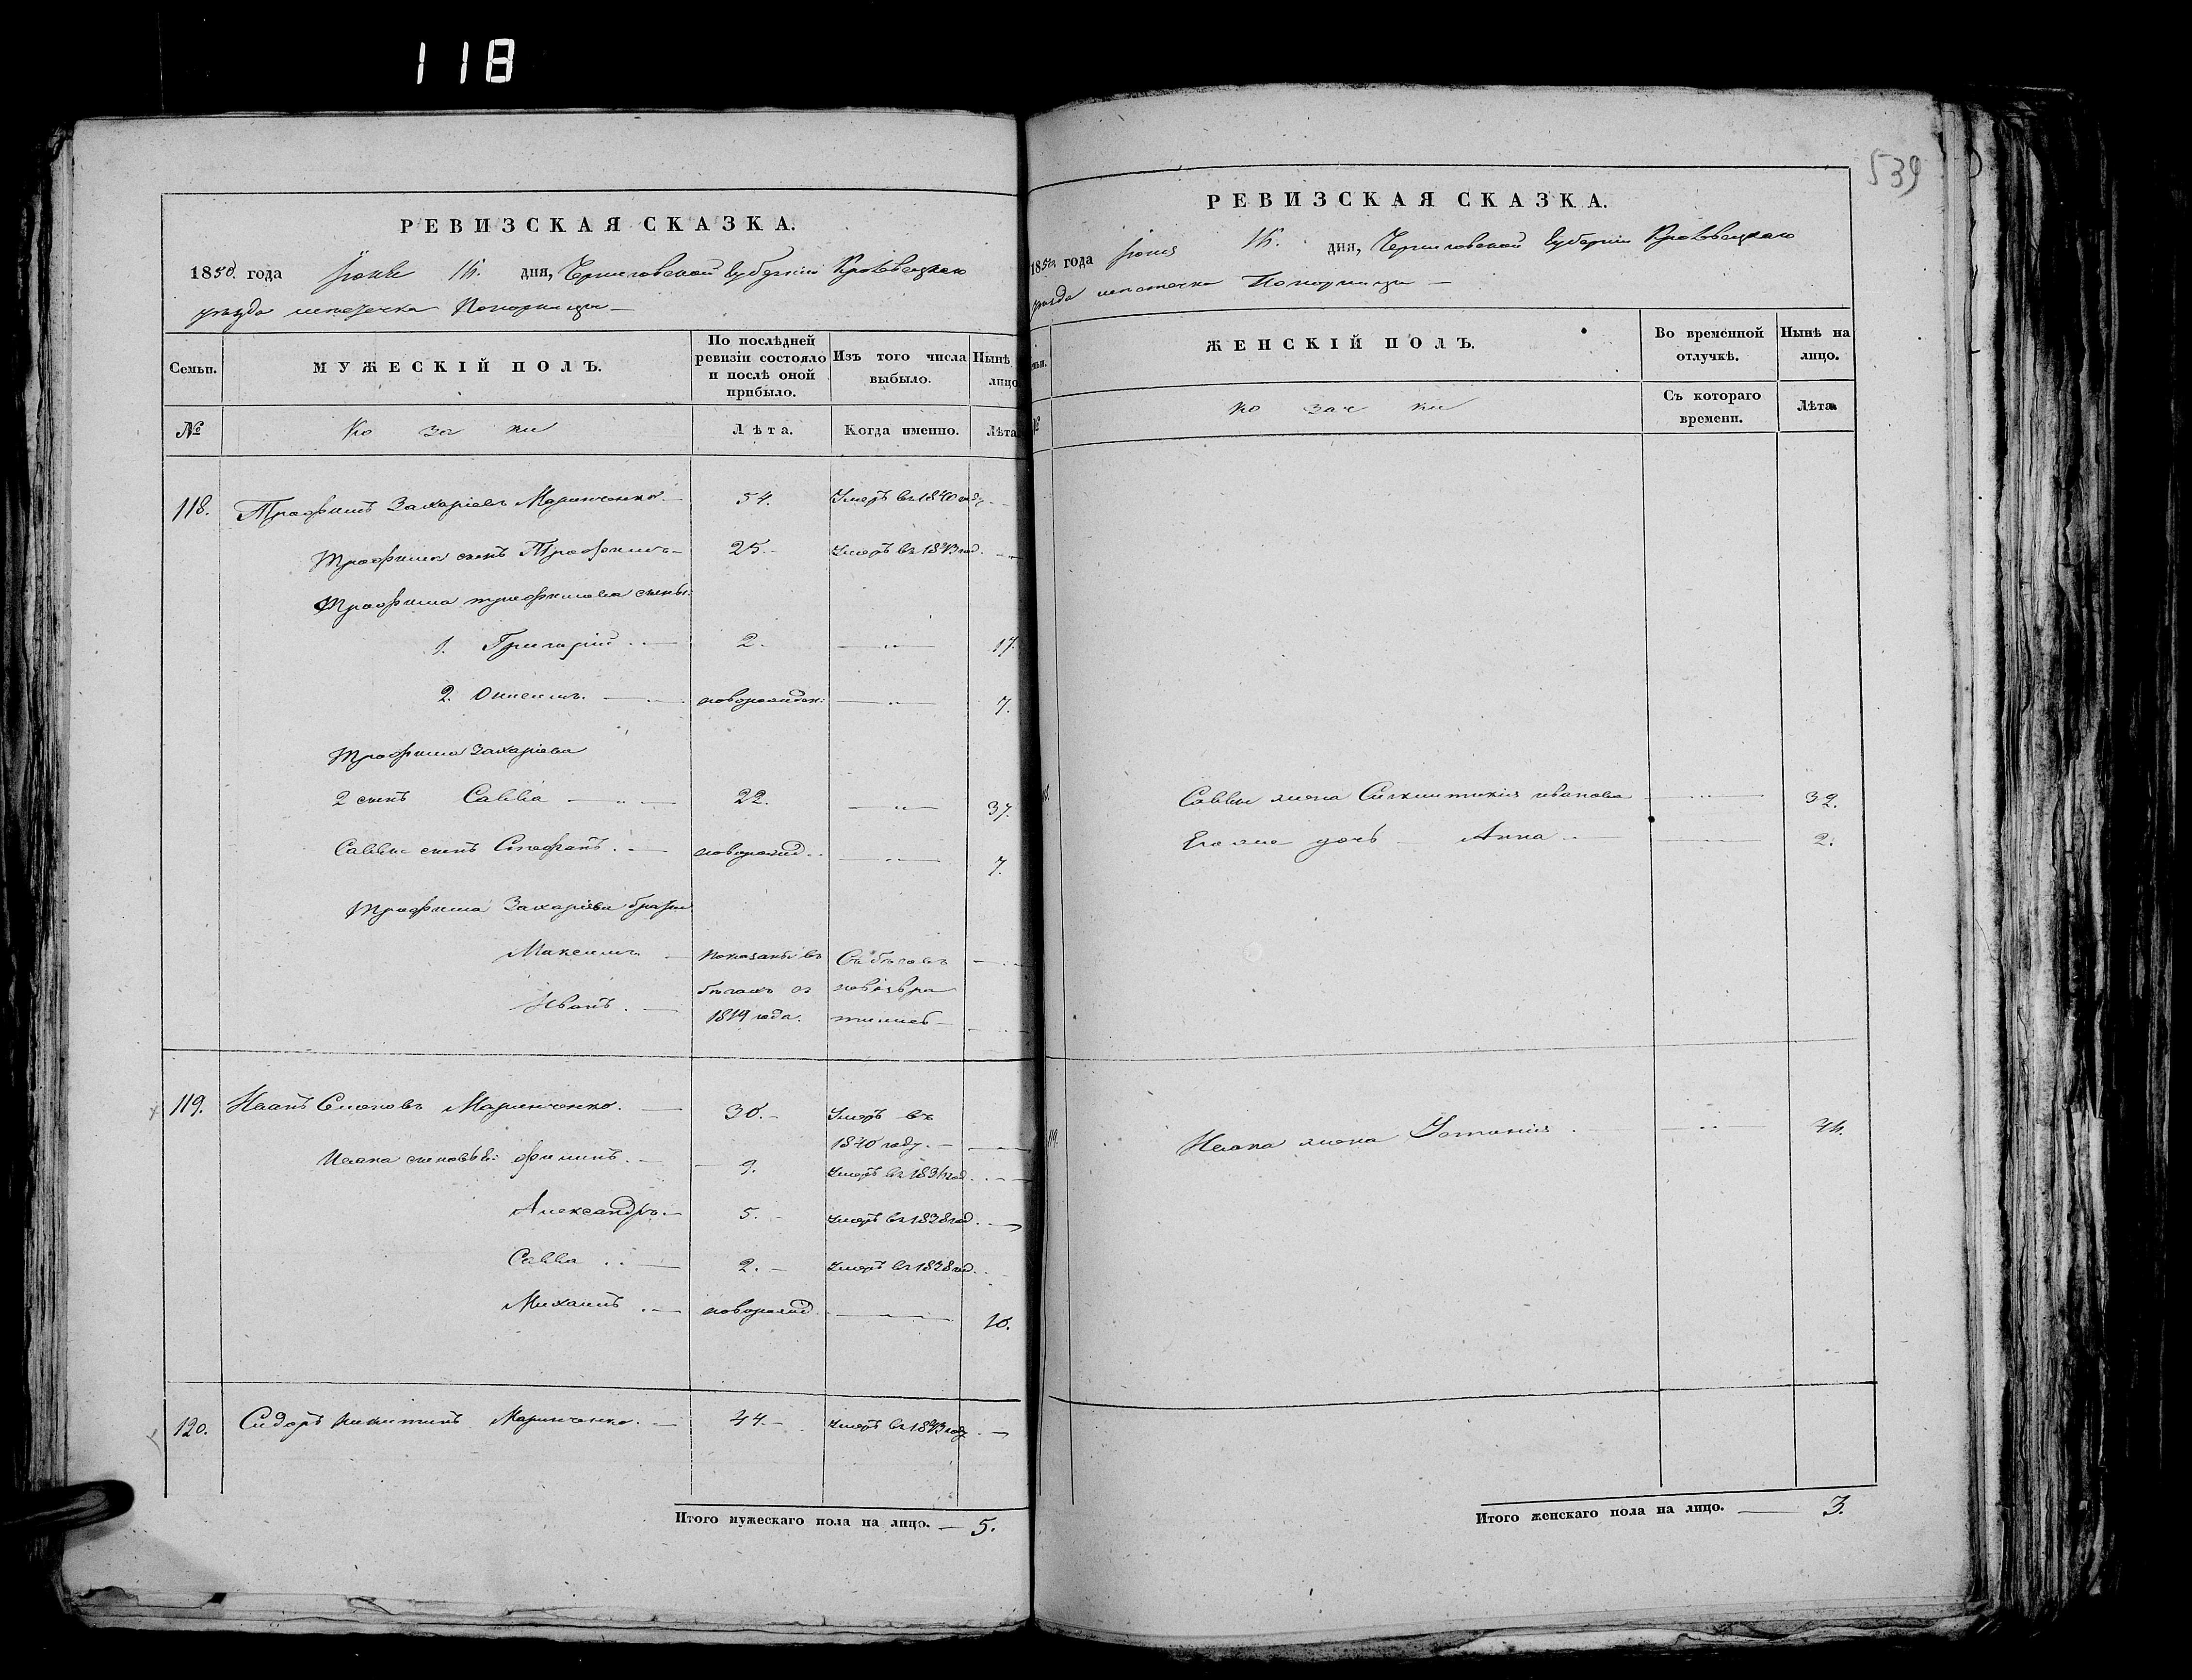 118
539
РЕВИЗСКАЯ СКАЗКА.
1850. года Іюня 15. дня, Черниговской губерніи Кролевецкаго
уѣзда местечка Понорницы —
Семьи.
МУЖЕСКІЙ ПОЛЪ.
По послѣдней ревизіи состояло и послѣ оной прибыло.
Изъ того числа выбыло.
Нынѣ лицо
№
Козаки
Лѣта.
Когда именно.
Лѣта
118. Трофимъ Захаріевъ Маринченко — 54. Умеръ въ 1840 году. —
Трофима сынъ Трофимъ — 25. — Умеръ въ 1843 год. —
Трофима трофимова сыны:
1. Григорій — 2. — 17.
2. Онисимъ. — новорожден: — 7.
Трофима Захаріева
2 сынъ Савва — 22. — 37.
Саввы сынъ Стефанъ. — новорожд. — 7.
Трофима Захаріева братья
Максимъ — показаны въ Съ бѣговъ —
Иванъ. — бѣгахъ съ невозвра
1819 года. тились —
119. Исакъ Маринченко. — 30. — Умеръ въ
1840 году. —
Исака сыновья: филипъ. — 9. Умеръ въ год. —
Александръ. — 5. — Умеръ въ 1838 год. —
Савва — 2. — Умеръ въ 1838 год.
Михаилъ — новорожд. — 10.
120. Сидоръ Никитинъ Маринченко. — 44. — Умеръ въ 1843 году —
Итого мужескаго пола на лицо. — 5.
РЕВИЗСКАЯ СКАЗКА.
1850. года Іюня 15. дня, Черниговской губерніи Кролевецкаго
уѣзда местечка Понорницы —
ЖЕНСКІЙ ПОЛЪ.
Во временной отлучкѣ.
Нынѣ на лицо.
№
Козачки
Съ котораго времени.
Лѣта
Саввы жена иванова — 32.
Его же дочь — Анна — 2.
119. Исака жена — 44.
Итого женскаго пола на лицо. — 3.